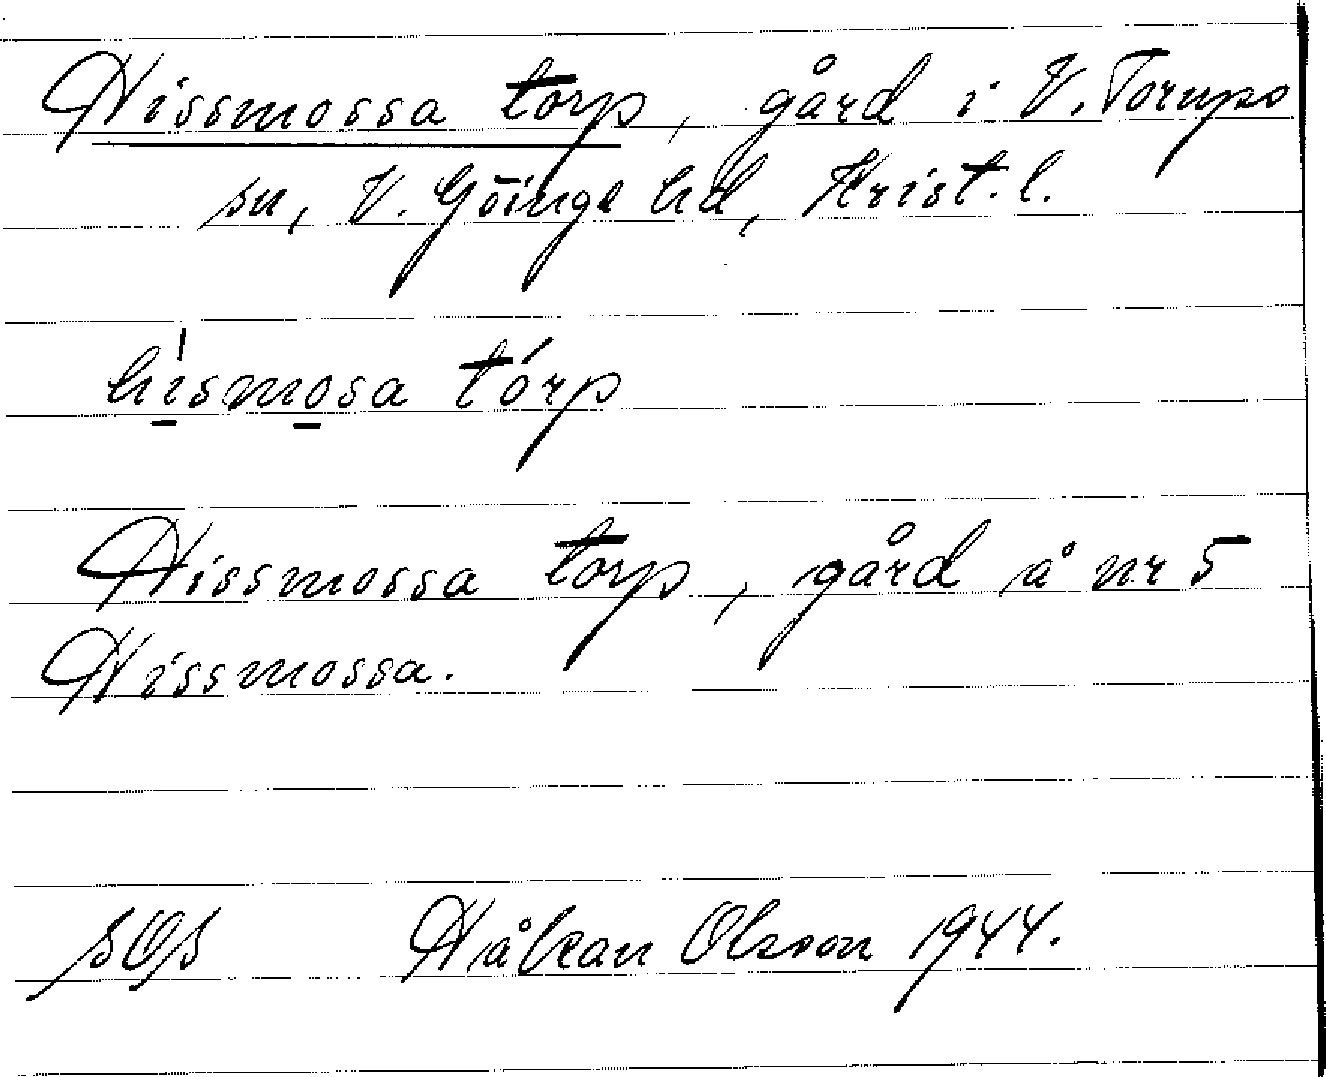 Hissmossa torp, gård i V. Torups
sn, V. Göinge hd, Krist. l.
hismosa tórp
Hissmossa torp, gård å nr 5
Hissmossa.
SOS Håkan Olsson 1944.